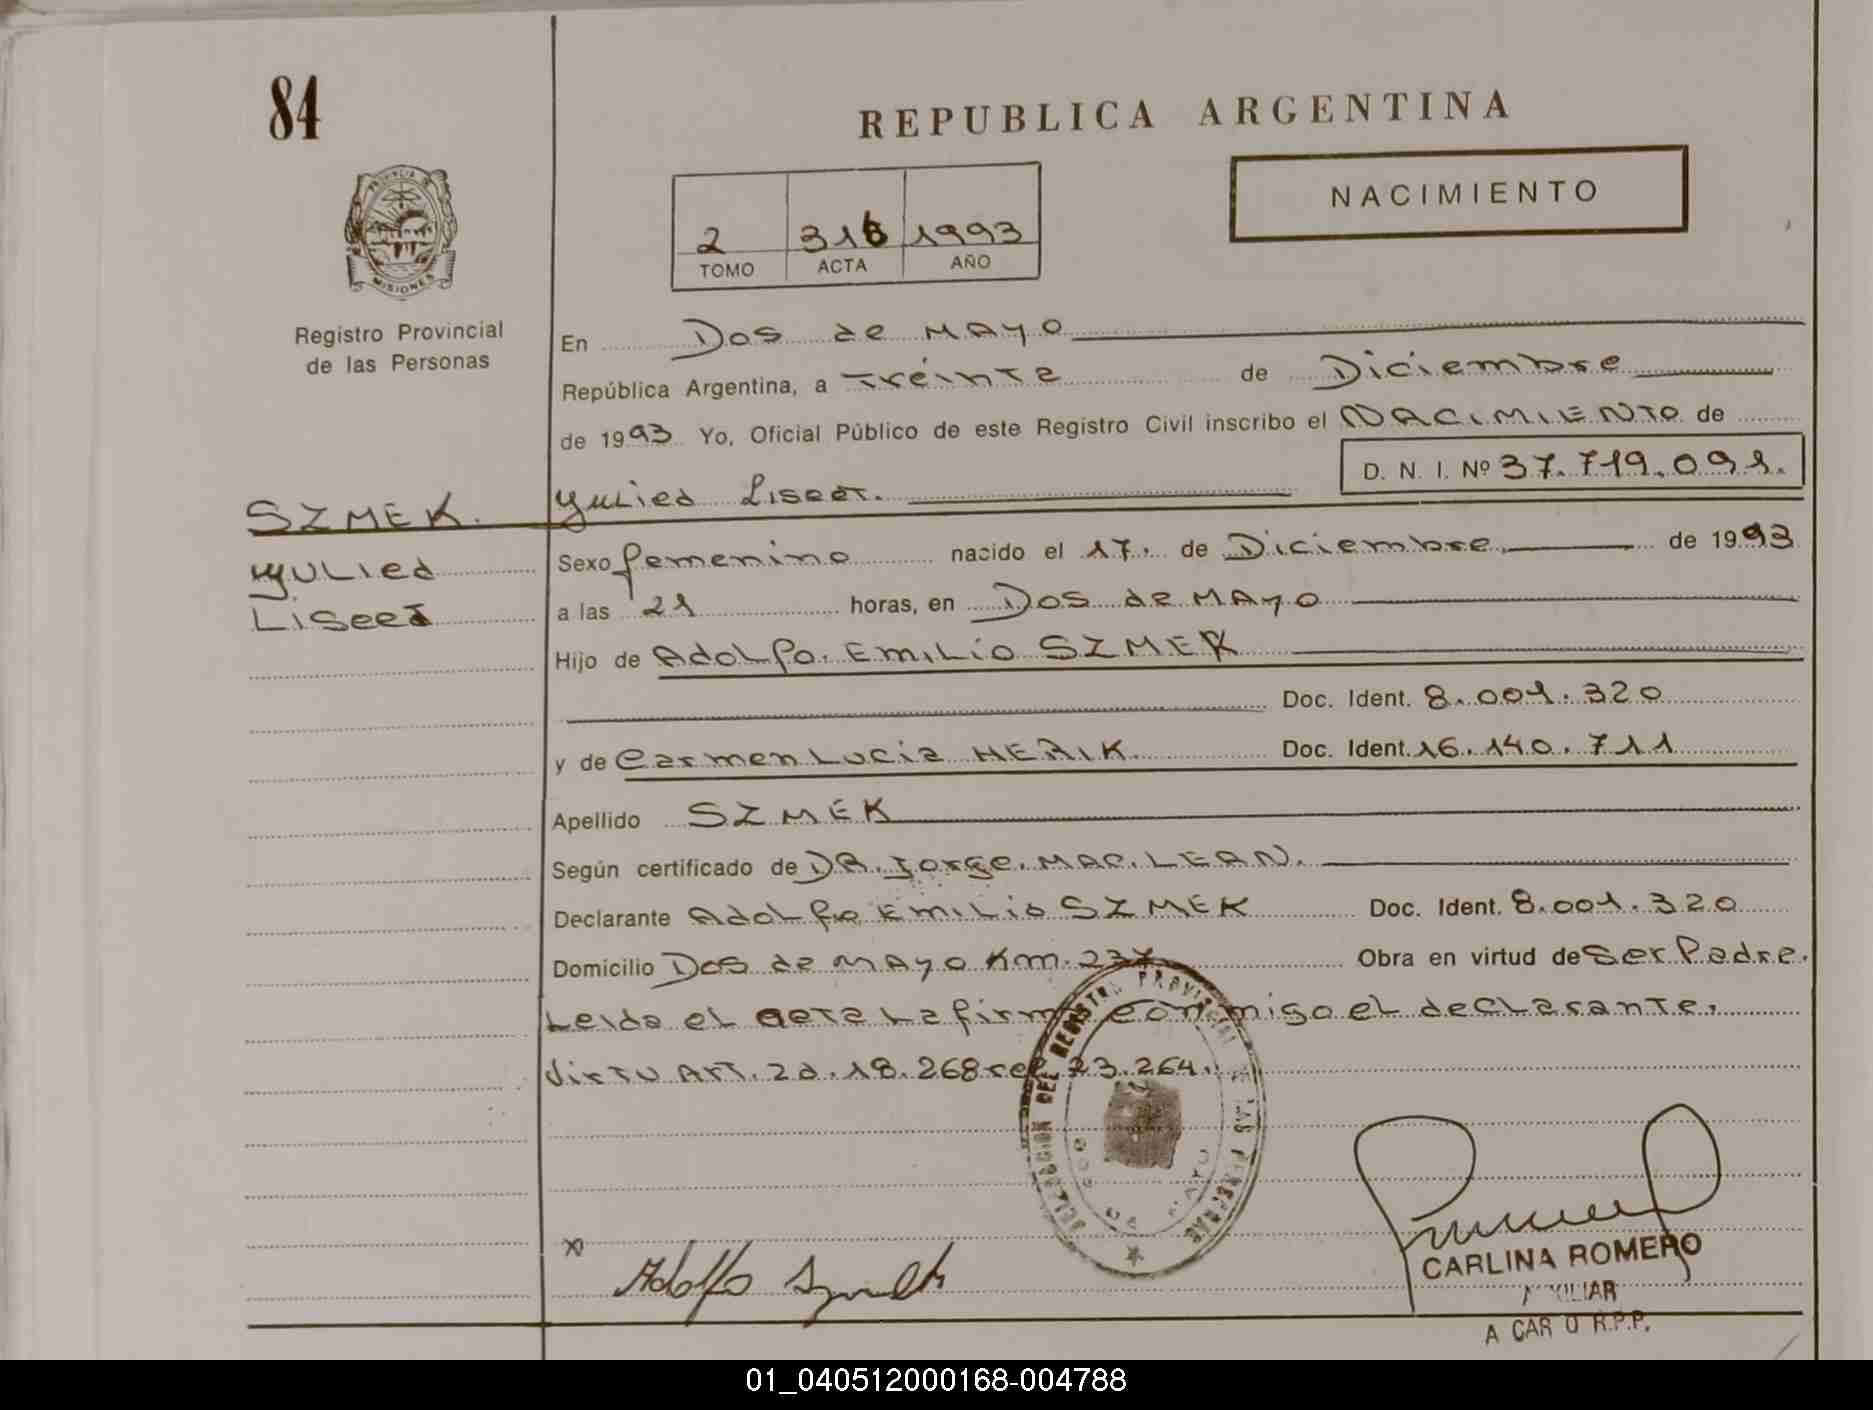 84
REPUBLICA ARGENTINA
NACIMIENTO
2 316 1993
TOMO ACTA AÑO
PROVINCIA DE
MISIONES
Registro Provincial
de las Personas
En Dos de MAYO
República Argentina, a treinta de Diciembre
de 1993 Yo, Oficial Público de este Registro Civil inscribo el NACIMIENTO de
D. N. I. Nº 37.719.091.
SZMEK.
Yulied
Liseet
Yulied Liseet.
Sexo femenino nacido el 17. de Diciembre de 1993
a las 21 horas, en Dos de MAYO
Hijo de Adolfo. EMiLio SZMEK
Doc. Ident. 8.001.320
y de Carmen Lucia HERIK. Doc. Ident. 16.140.711
Apellido SZMEK
Según certificado de DR. Jorge. MAC. LEAN.
Declarante Adolfo EMiLio SZMEK Doc. Ident. 8.001.320
Domicilio Dos de MAYO Km. 237 Obra en virtud de Ser Padre.
Leida el acta La firma conmigo el declarante.
Virtu Art. 2d. 18.268 23.264.
DELEGACION DEL REGISTRO PROVINCIAL DE LAS PERSONAS
DOS DE MAYO
Adolfo Szmek
CARLINA ROMERO
AUXILIAR
A CARGO R.P.P.
01_040512000168-004788